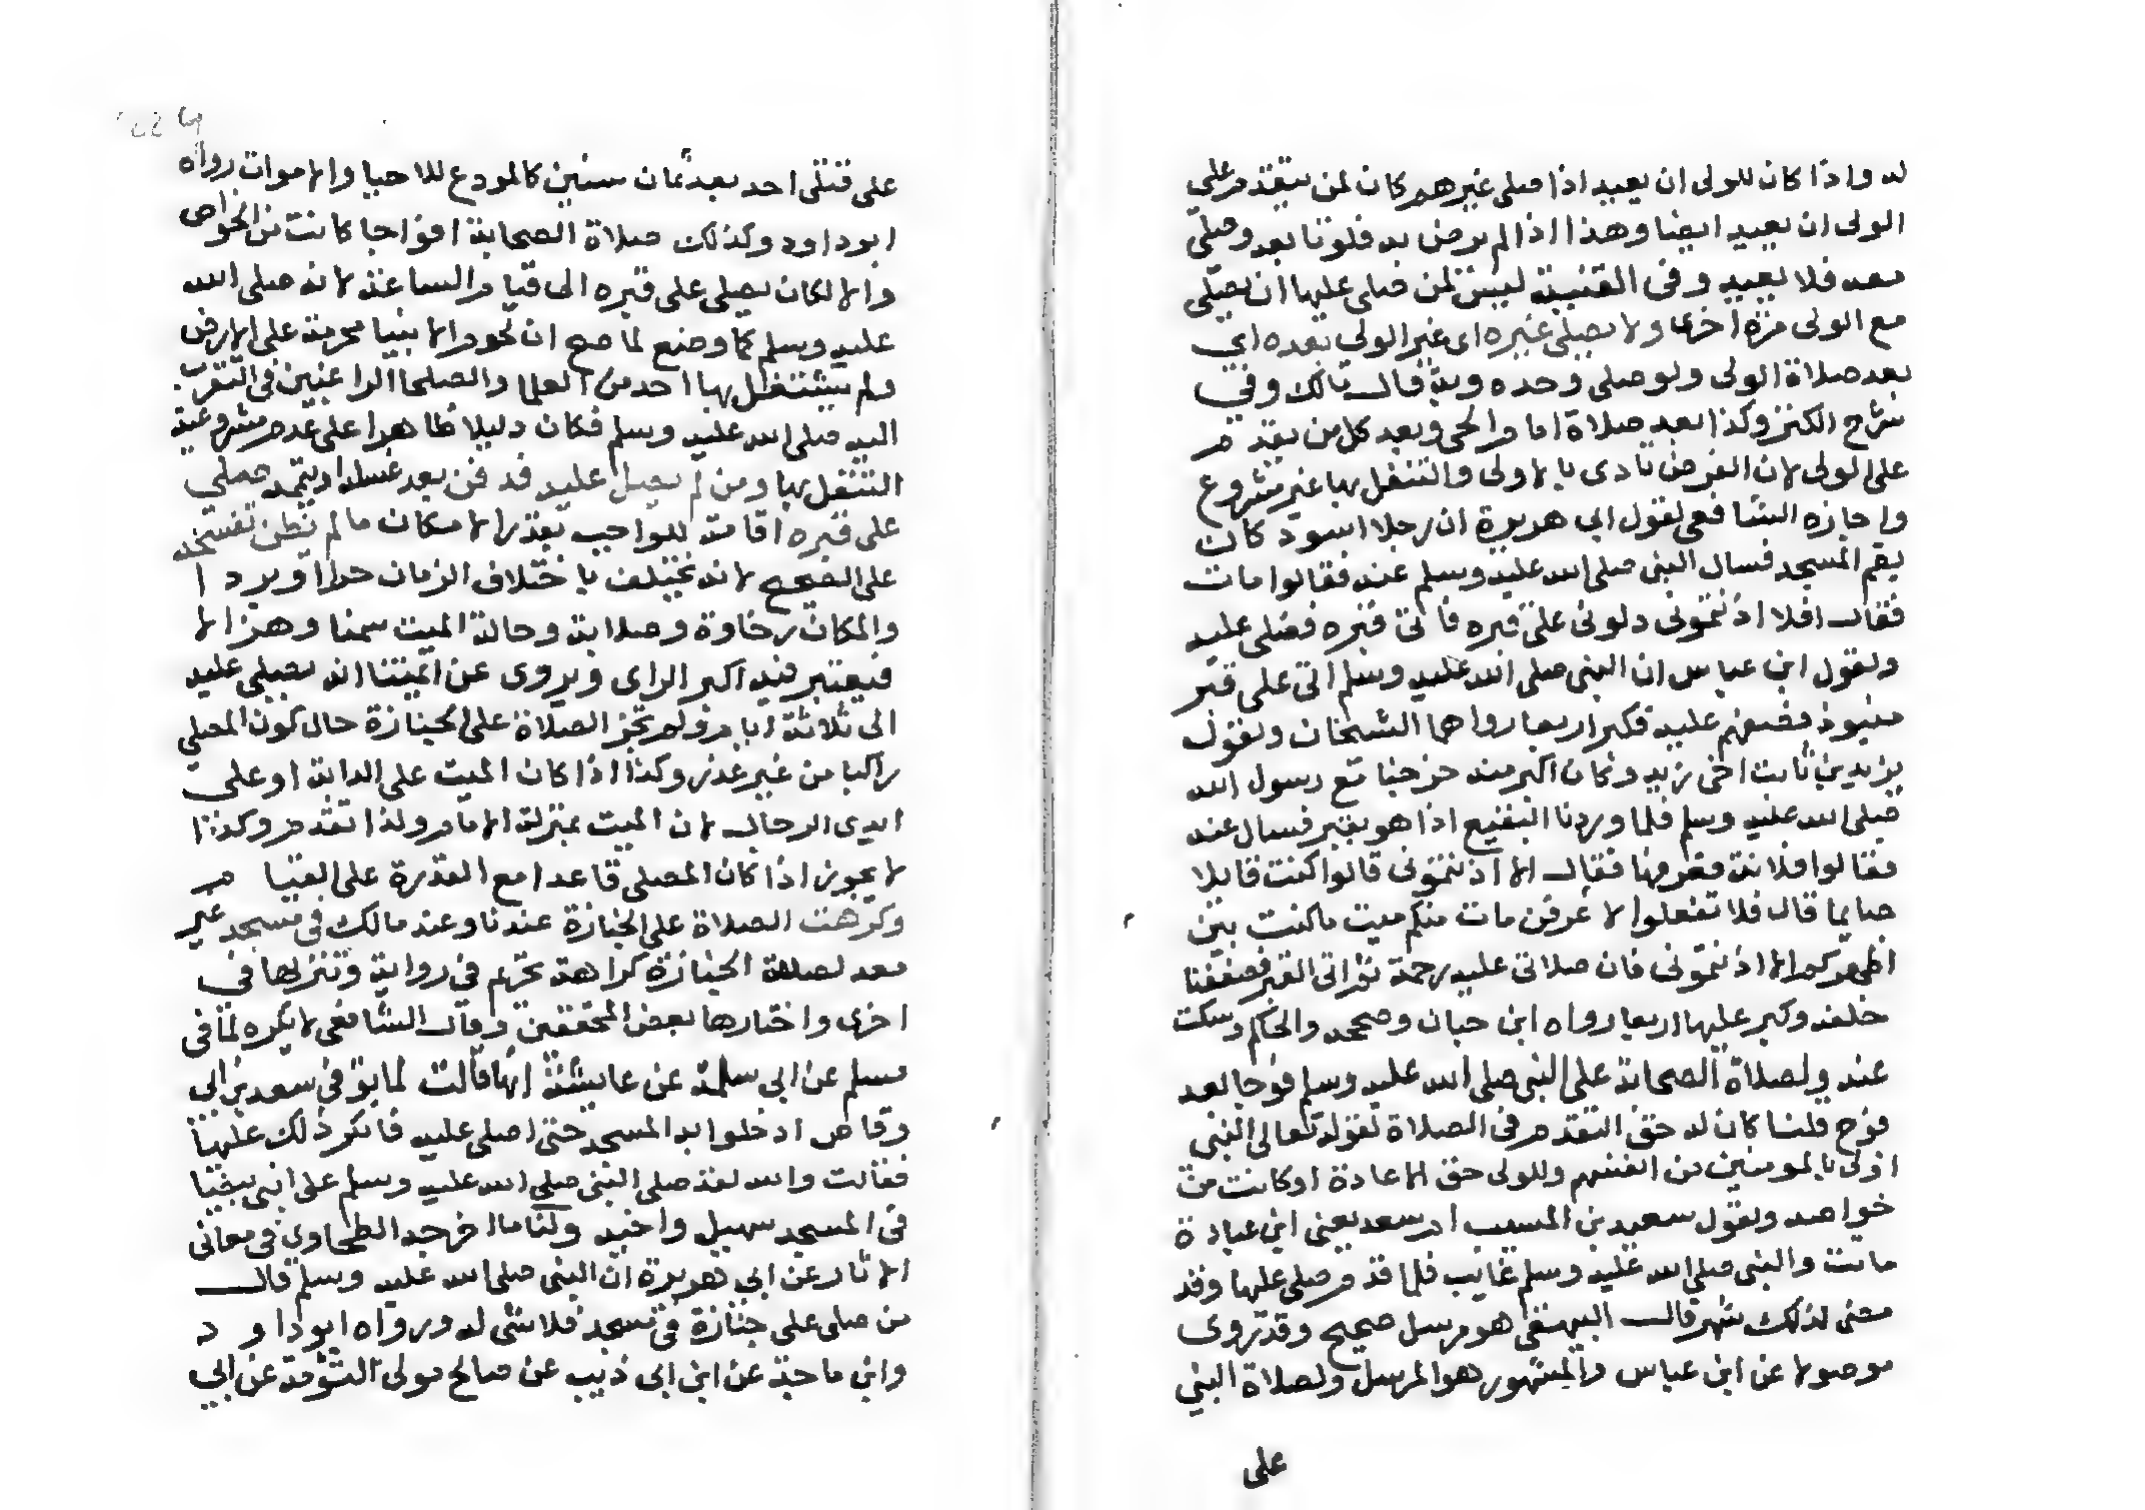 له واذا كان للولى ان يعيد اذا صلى غيرهم كان لمن يتقدم على
الولى ان يعيد ايضا وهذا اذا لم يرض به فلو تابعه وصلى
معه فلا يعيد وفى القنية ليس لمن صلى عليها ان يصلى
مع الولى مرة اخرى ولا يصلى غيره اى غير الولى بعده اى
بعد صلاة الولى ولو صلى وحده وبه قال مالك وفى
شرح الكنز وكذا بعد صلاة امام الحى وبعد كل من يتقدم
على الولى لان الفرض تادى بالاولى والتنفل بها غير مشروع
واجازه الشافعى لقول ابى هريرة ان رجلا اسود كان
يقم المسجد فسال النبى صلى الله عليه وسلم عنه فقالوا مات
فقال افلا اذنتمونى دلونى على قبره فاتى قبره فصلى عليه
ولقول ابن عباس ان النبى صلى الله عليه وسلم اتى على قبر
منبوذ فصفهم عليه فكبر اربعا رواهما الشيخان ولقول
يزيد بن ثابت اخى زيد وكان اكبر منه خرجنا مع رسول الله
صلى الله عليه وسلم فلما وردنا البقيع اذا هو بقبر فسال عنه
فقالوا فلانة فعرفها فقال الا اذنتمونى قالوا كنت قايلا
صايما قال فلا تفعلوا لا عرفن مات منكم ميت ماكنت بين
اظهركم الا اذنتمونى فان صلاتى عليه رحمة ثم اتى القبر فصففنا
خلفه وكبر عليها اربعا رواه ابن حبان وصححه والحاكم وسكت
عنه ولصلاة الصحابة على النبى صلى الله عليه وسلم فوجا بعد
فوج قلنا كان له حق التقدم فى الصلاة لقوله تعالى النبى
اولى بالمومنين من انفسهم وللولى حق الاعادة اوكانت من
خواصه ولقول سعيد بن المسيب ام سعد يعنى ابن عبادة
ماتت والنبى صلى الله عليه وسلم غايب فلما قدم صلى عليها وقد
مضى لذلك شهر قال البيهقى هو مرسل صحيح وقد روى
موصولا عن ابن عباس والمشهور هو المرسل ولصلاة النبى
على
على قتلى احد بعد ثمان سنين كالمودع للاحيا والاموات رواه
ابوداود وكذلك صلاة الصحابة افواجا كانت من الخواص
والا لكان يصلى على قبره الى قيام الساعة لانه صلى الله
عليه وسلم كما وضع لما صح ان لحوم الانبيا محرمة على الارض
ولم يشتغل بها احد من العلما والصلحا الراغبين فى التقرب
اليه صلى الله عليه وسلم فكان دليلا ظاهرا على عدم مشروعية
التنفل بها ومن لم يصل عليه فدفن بعد غسله او تيممه صلى
على قبره اقامة للواجب بقدر الامكان مالم يظن تفسخه
على الصحيح لانه يختلف باختلاف الزمان حرا وبردا
والمكان رخاوة وصلابة وحالة الميت سمنا وهزالا
فيعتبر فيه اكبر الراى ويروى عن ايمتنا انه يصلى عليه
الى ثلاثة ايام ولم تجز الصلاة على الجنازة حال كون المصلى
راكبا من غير عذر وكذا اذا كان الميت على الدابة او على
ايدى الرجال لان الميت بمنزلة الامام ولذا تقدم وكذا
لا يجوز اذا كان المصلى قاعدا مع القدرة على القيام
وكرهت الصلاة على الجنازة عندنا وعند مالك فى مسجد غير
معد لصلاة الجنازة كراهة تحريم فى رواية وتنزيها فى
اخرى واختارها بعض المحققين وقال الشافعى لا يكره لما فى
مسلم عن ابى سلمة عن عايشة انها قالت لما توفى سعد بن ابى
وقاص ادخلوا به المسجد حتى اصلى عليه فانكر ذلك عليها
فقالت والله لقد صلى النبى صلى الله عليه وسلم على ابنى بيضا
فى المسجد سهيل واخيه ولنا ما اخرجه الطحاوى فى معانى
الاثار عن ابى هريرة ان النبى صلى الله عليه وسلم قال
من صلى على جنازة فى مسجد فلا شى له ورواه ابوداود
وابن ماجة عن ابن ابى ذيب عن صالح مولى التؤمة عن ابى